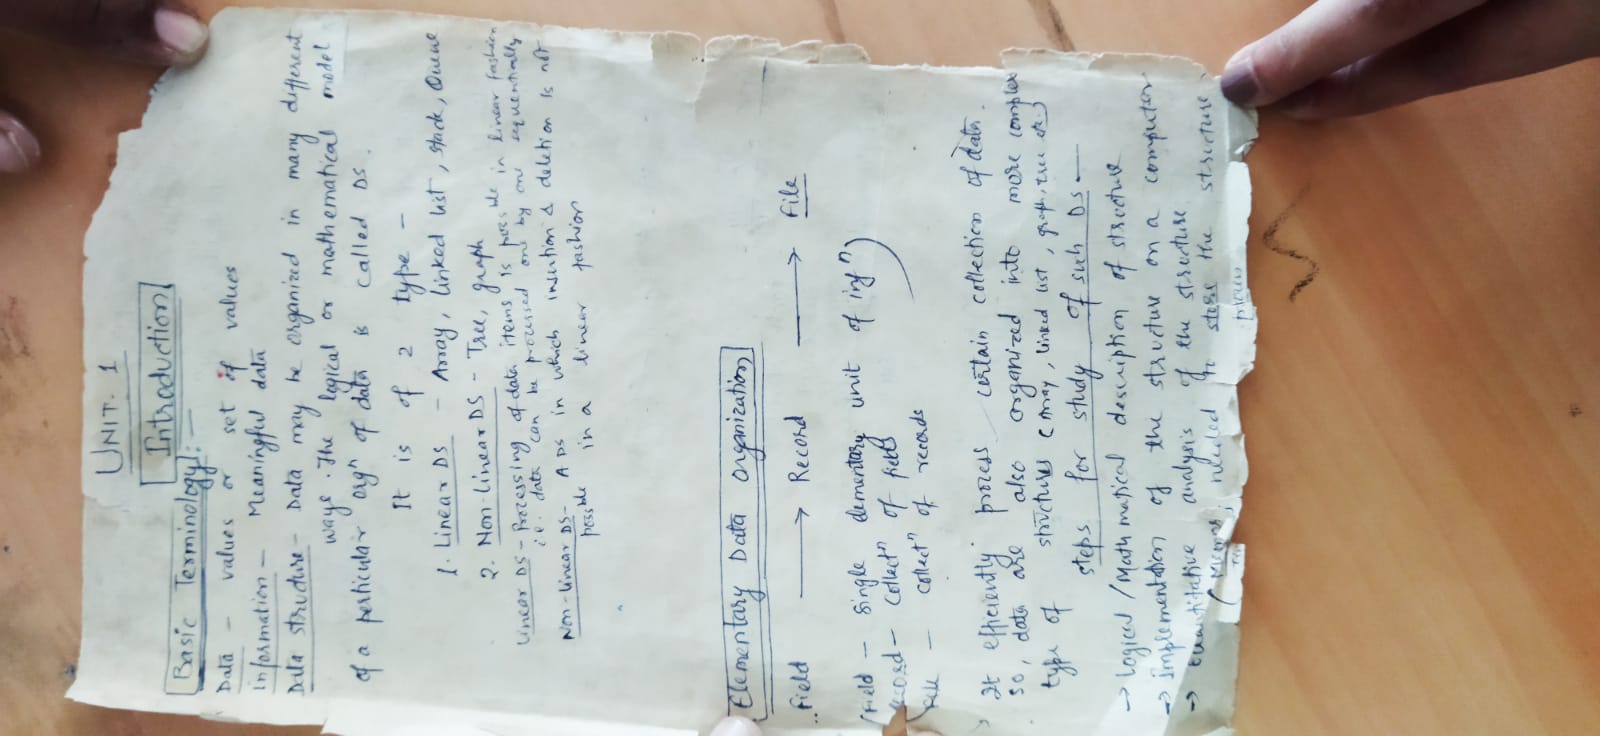 UNIT. 1
Introduction
Basic Terminology :-
Data - values or set of values
Information - Meaningful data
Data structure - Data may be organized in many different
ways. The logical or mathematical model
of a perticular orgⁿ of data is called DS.
It is of 2 type -
1. Linear DS - Array, Linked list, stack, Queue
2. Non-linear DS - Tree, graph
Linear DS - Processing of data items is possible in linear fashion
i.e. data can be processed one by one sequentially
Non-linear DS - A DS in which insertion & deletion is not
possible in a linear fashion
Elementary Data Organization
Field → Record → File
Field - Single elementary unit of infⁿ
Record - Collectⁿ of fields
File - Collectⁿ of records
It efficiently process certain collection of data.
So, data are also organized into more complex
type of structures (Array, linked list, graph, tree etc.)
steps for study of such DS -
→ Logical / Mathmatical description of structure
→ Implementation of the structure on a computer
→ Quantitative analysis of the structure
(Memory needed to store the structure